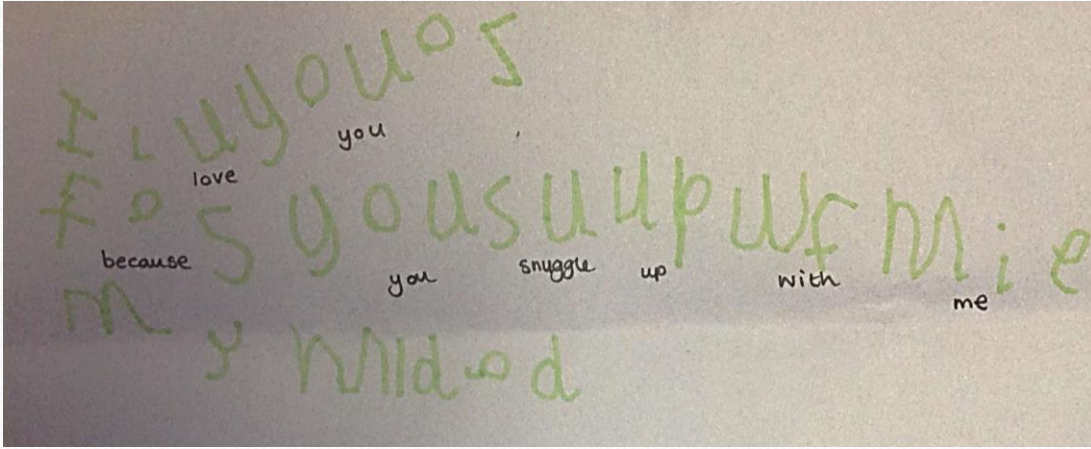 I L uyouos
love you
fos yousuupwf mie
because you snuggle up with me
my